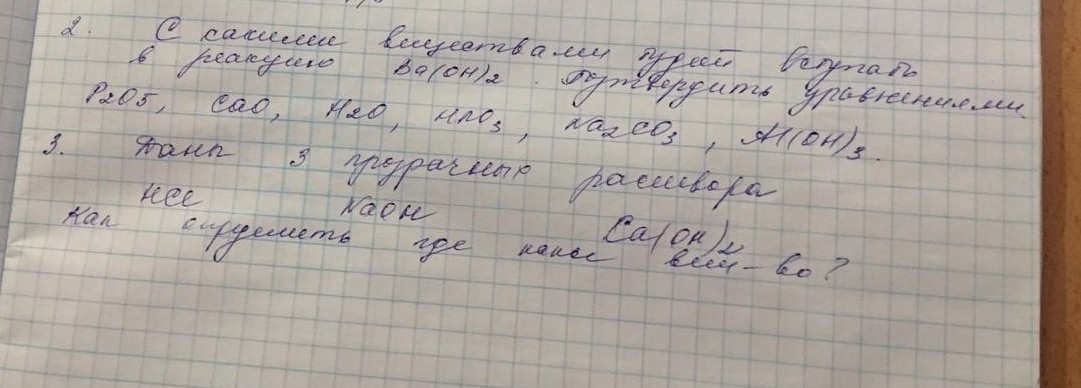 2. С какими веществами будет вступать
в реакцию Ba(OH)2. Подтвердить уравнениями.
P2O5, CaO, H2O, HNO3, Na2CO3, Al(OH)3.
3. Даны 3 прозрачных раствора
HCl NaOH Ca(OH)2
Как определить где какое вещ-во?